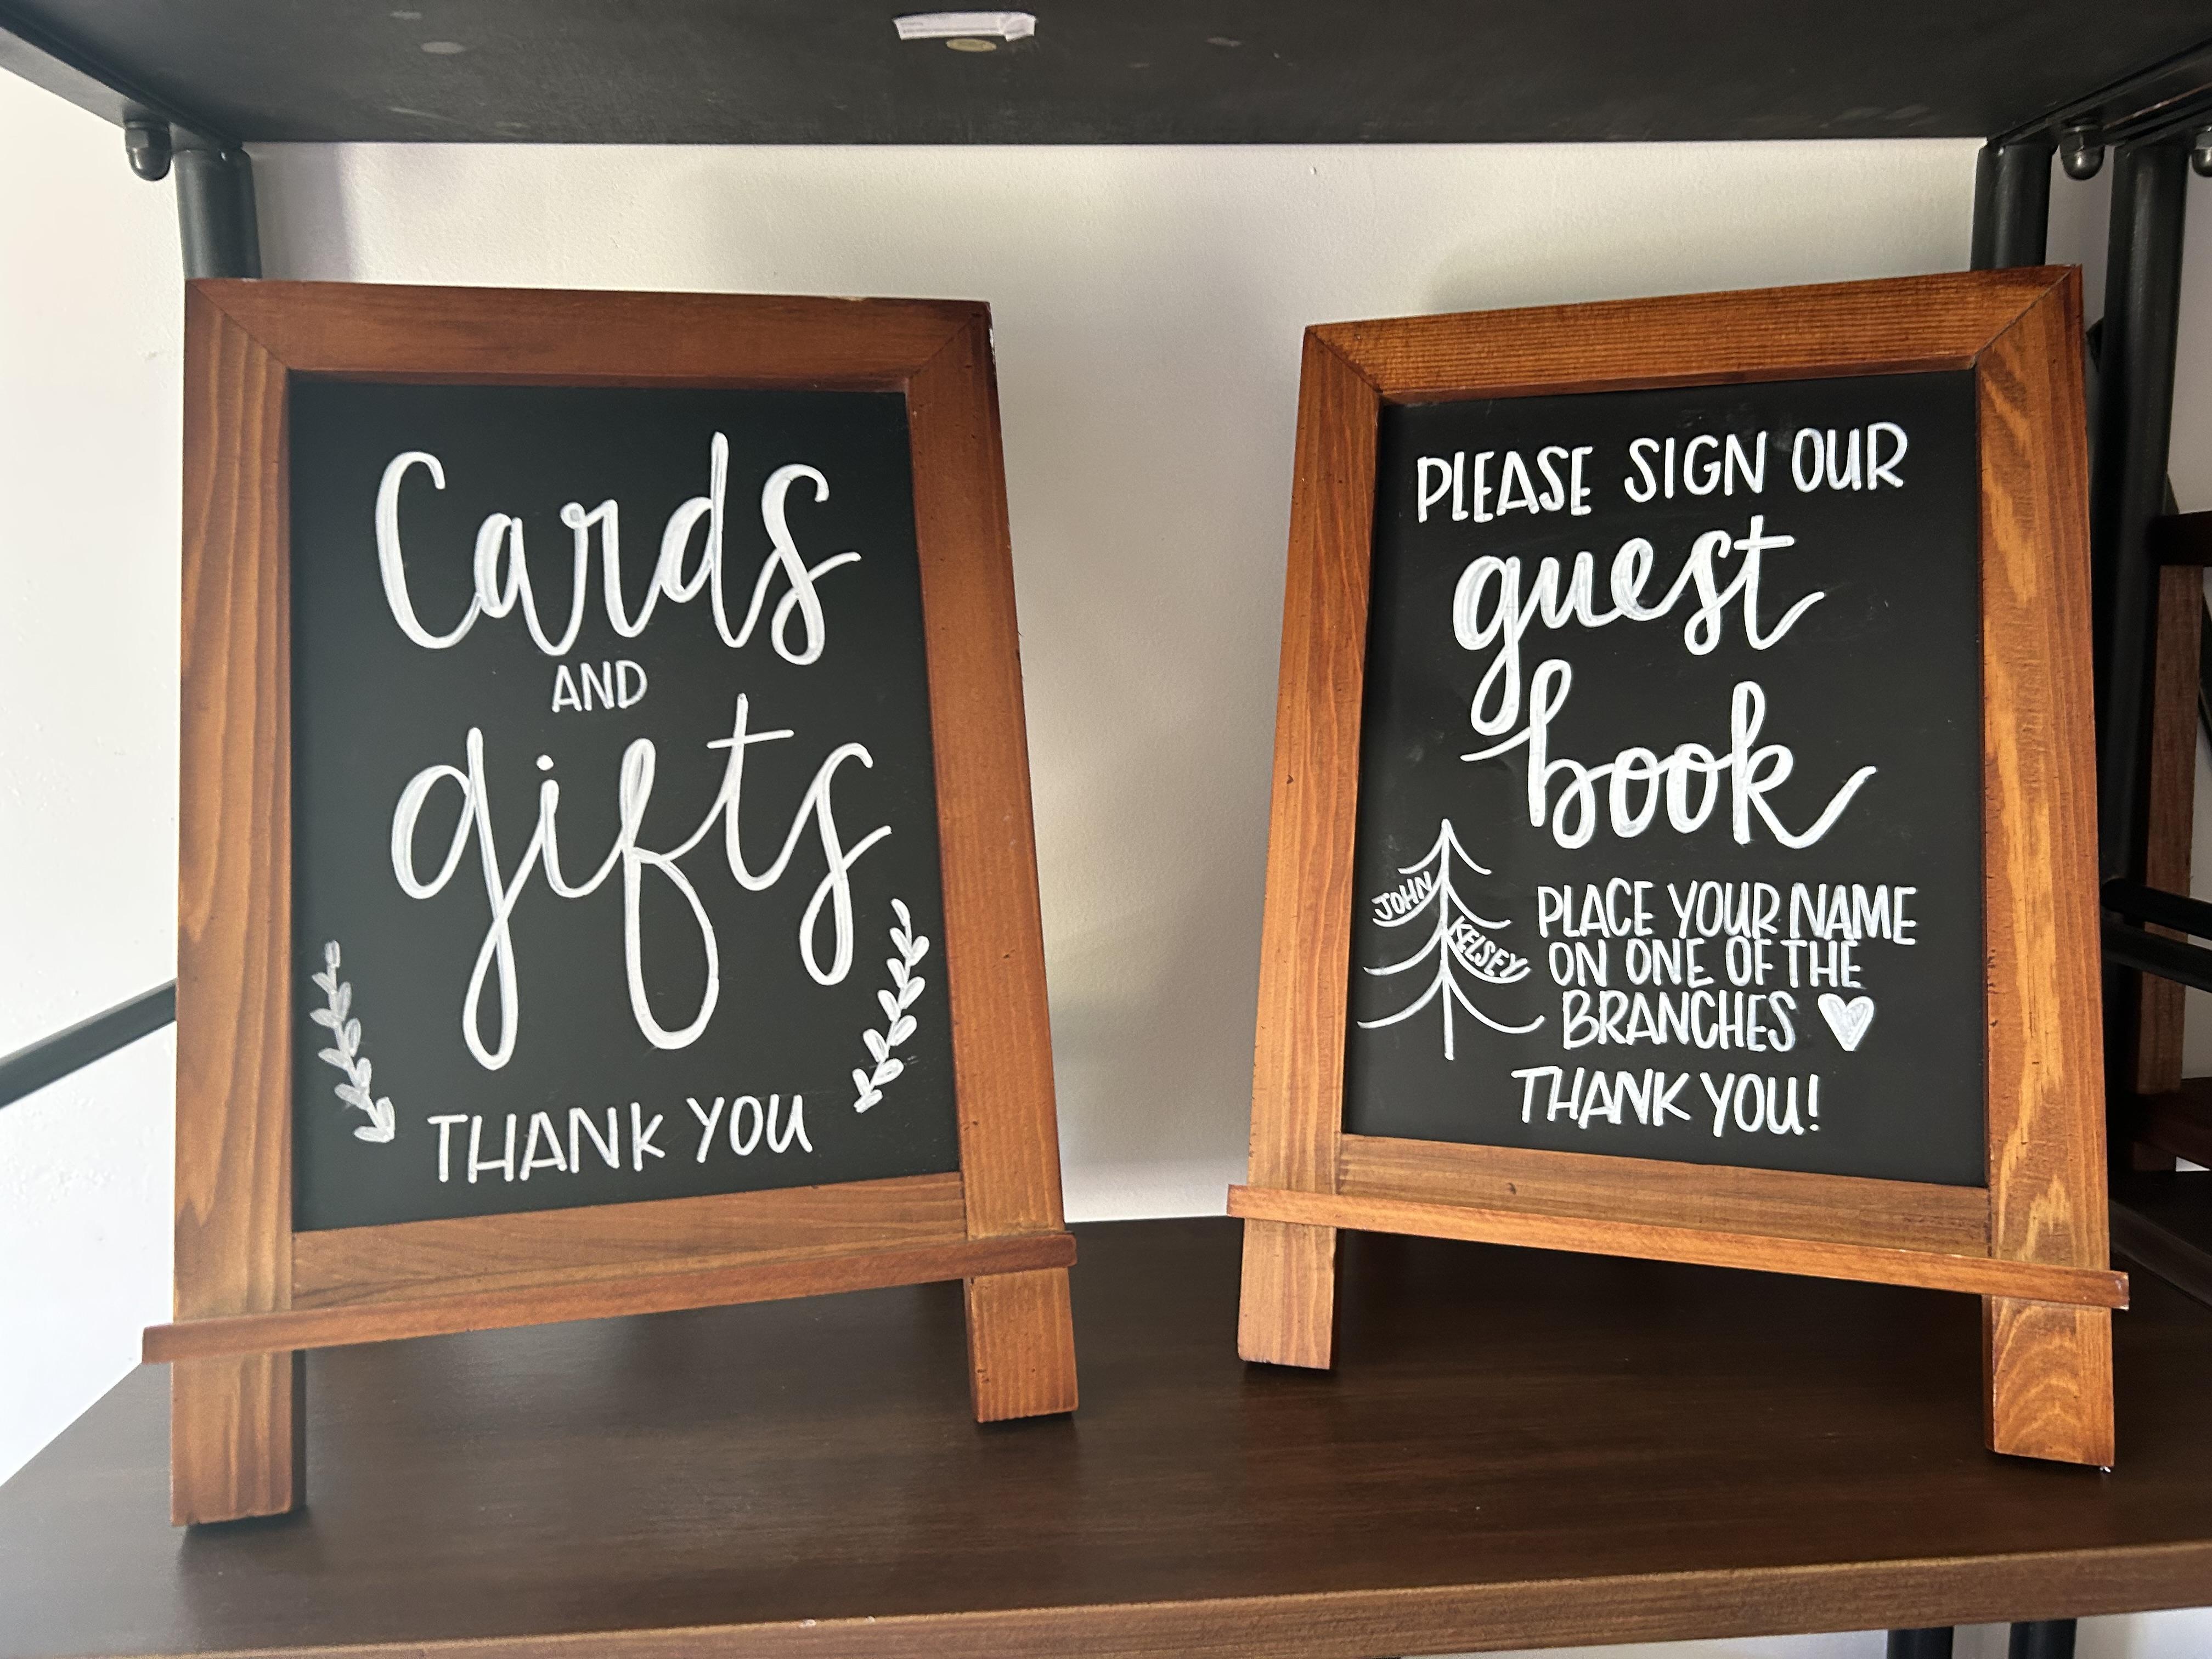 Cards
AND
gifts
THANK YOU
PLEASE SIGN OUR
guest
book
JOHN
KELSEY
PLACE YOUR NAME
ON ONE OF THE
BRANCHES
THANK YOU!